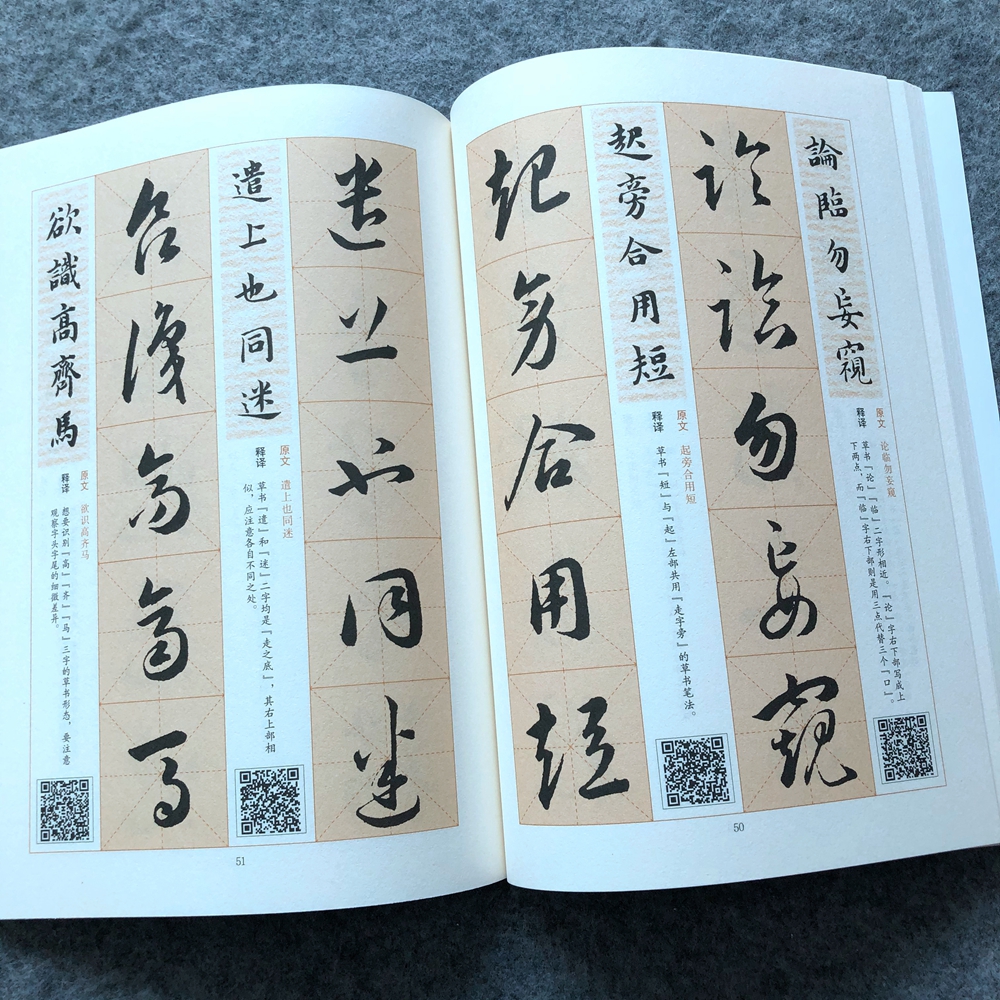 論臨勿妄窺
原文 论临勿妄窥
释译 草书「论」「临」二字形相近。「论」字右下部写成上
下两点，而「临」字右下部则是用三点代替三个「口」。
论临勿妄窥
起旁合用短
原文 起旁合用短
释译 草书「短」与「起」左部共用「走字旁」的草书笔法。
起旁合用短
50
遣上也同迷
遣上也同迷
原文 遣上也同迷
释译 草书「遣」和「迷」二字均是「走之底」，其右上部相
似，应注意各自不同之处。
欲識高齊馬
欲識高齊馬
原文 欲识高齐马
释译 想要识别「高」「齐」「马」三字的草书形态，要注意
观察字头字尾的细微差异。
51